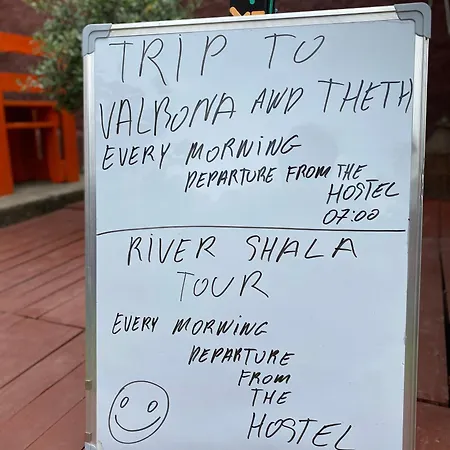 TRIP TO
VALBONA AND THETH
EVERY MORNING
DEPARTURE FROM THE
HOSTEL
07:00
RIVER SHALA
TOUR
EVERY MORNING
DEPARTURE
FROM
THE
HOSTEL